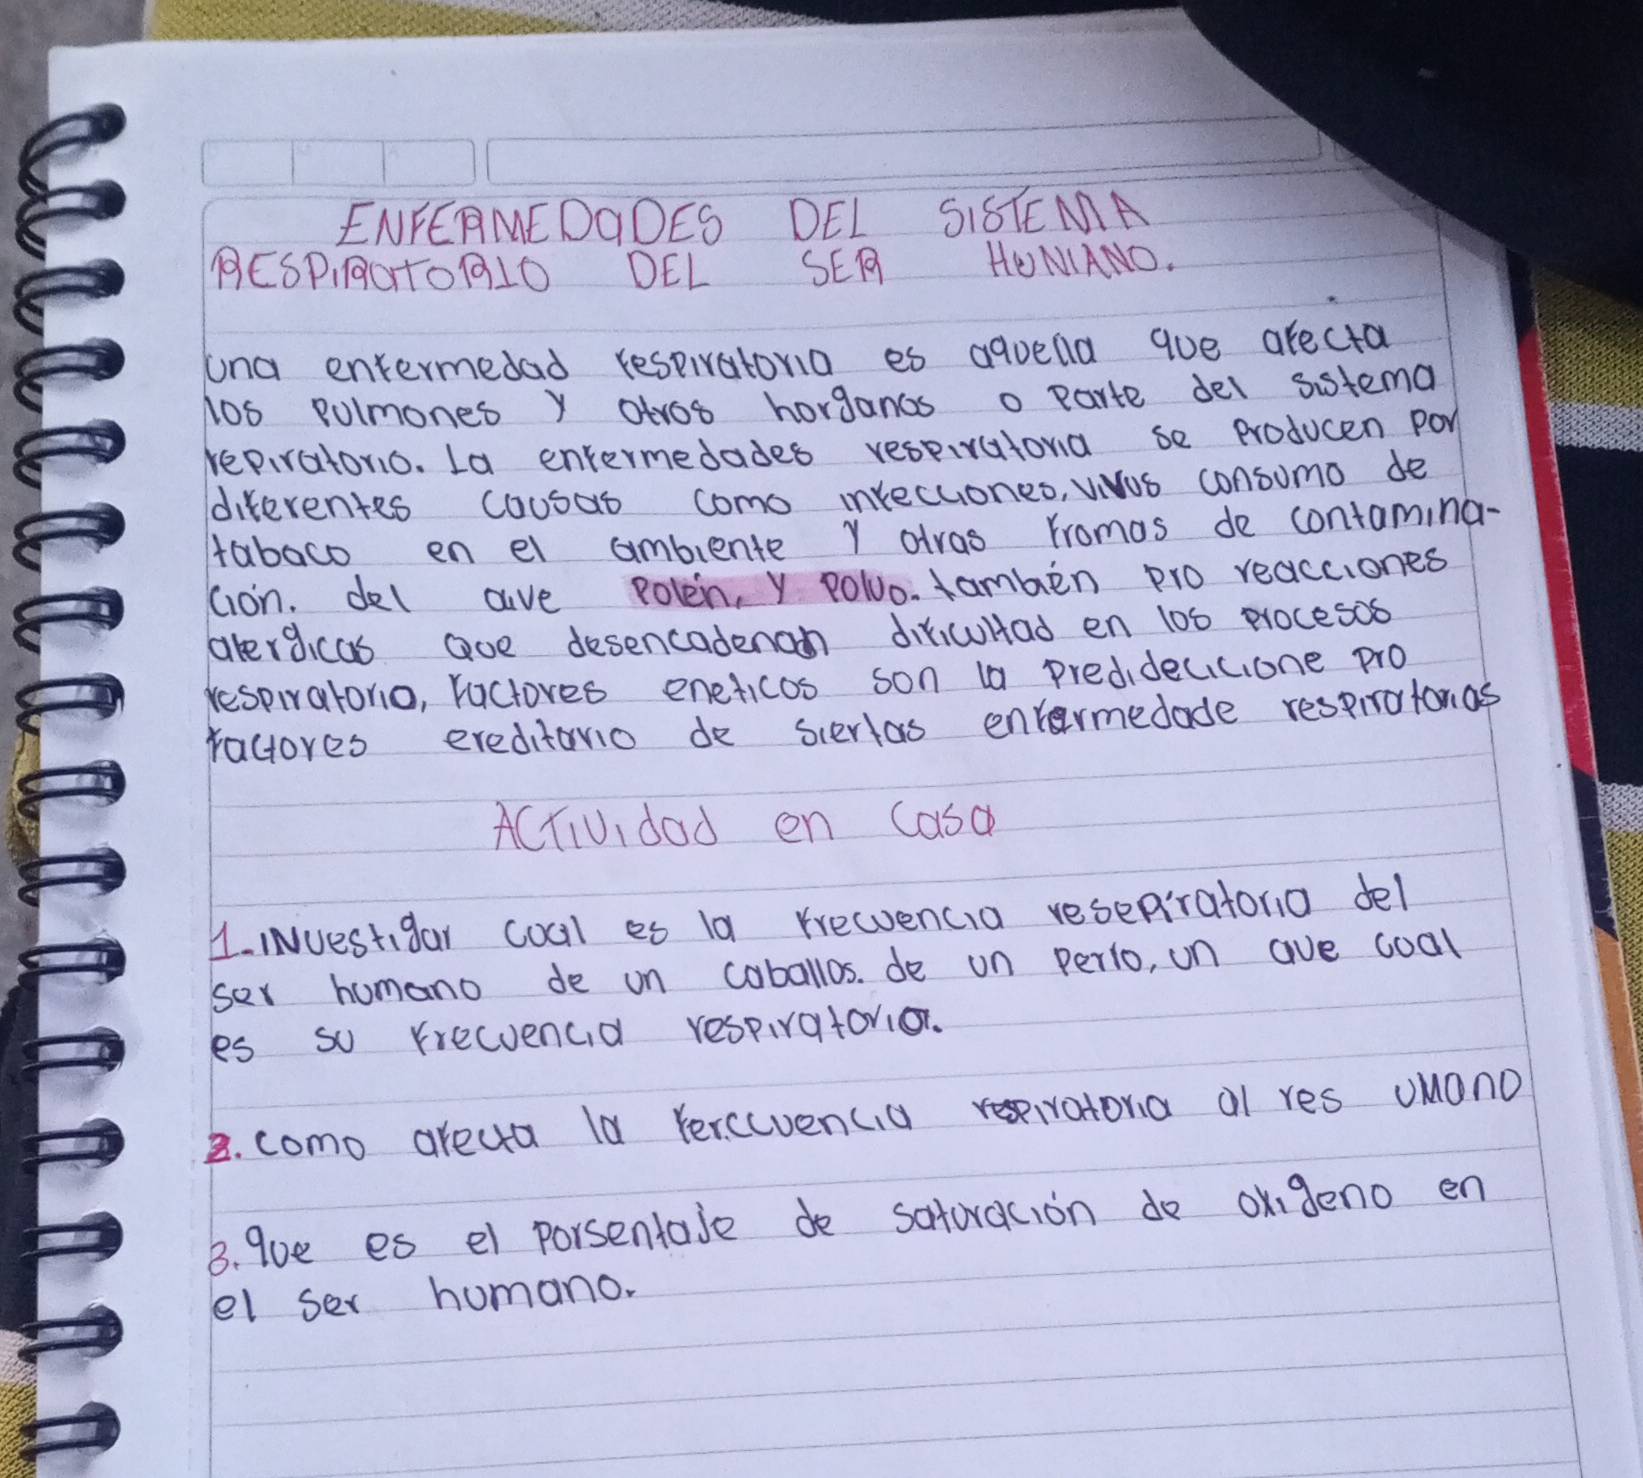 ENFERMEDADES DEL SISTEMA
RESPIRATORIO DEL SER HUMANO.
una enfermedad respiratoria es aquella que afecta
los pulmones y otros horganos o parte del sistema
repiratorio. La enfermedades respiratoria se producen por
diferentes causas como infecciones, virus consumo de
tabaco en el ambiente y otras fromas de contamina-
ción. del aire polén, y polvo. también pro reacciones
alergicas que desencadenan dificultad en los procesos
respiratorio, factores eneticos son la predidecicione pro
factores ereditario de siertas enfermedade respiratorias
Actividad en casa
1. investigar coal es la frecuencia resepiratoria del
ser humano de un caballos. de un perro, un ave coal
es su frecuencia respiratoria.
2. como afecta la ferccuencia respiratoria al res umano
3. que es el porsentaje de saturación de oxigeno en
el ser humano.